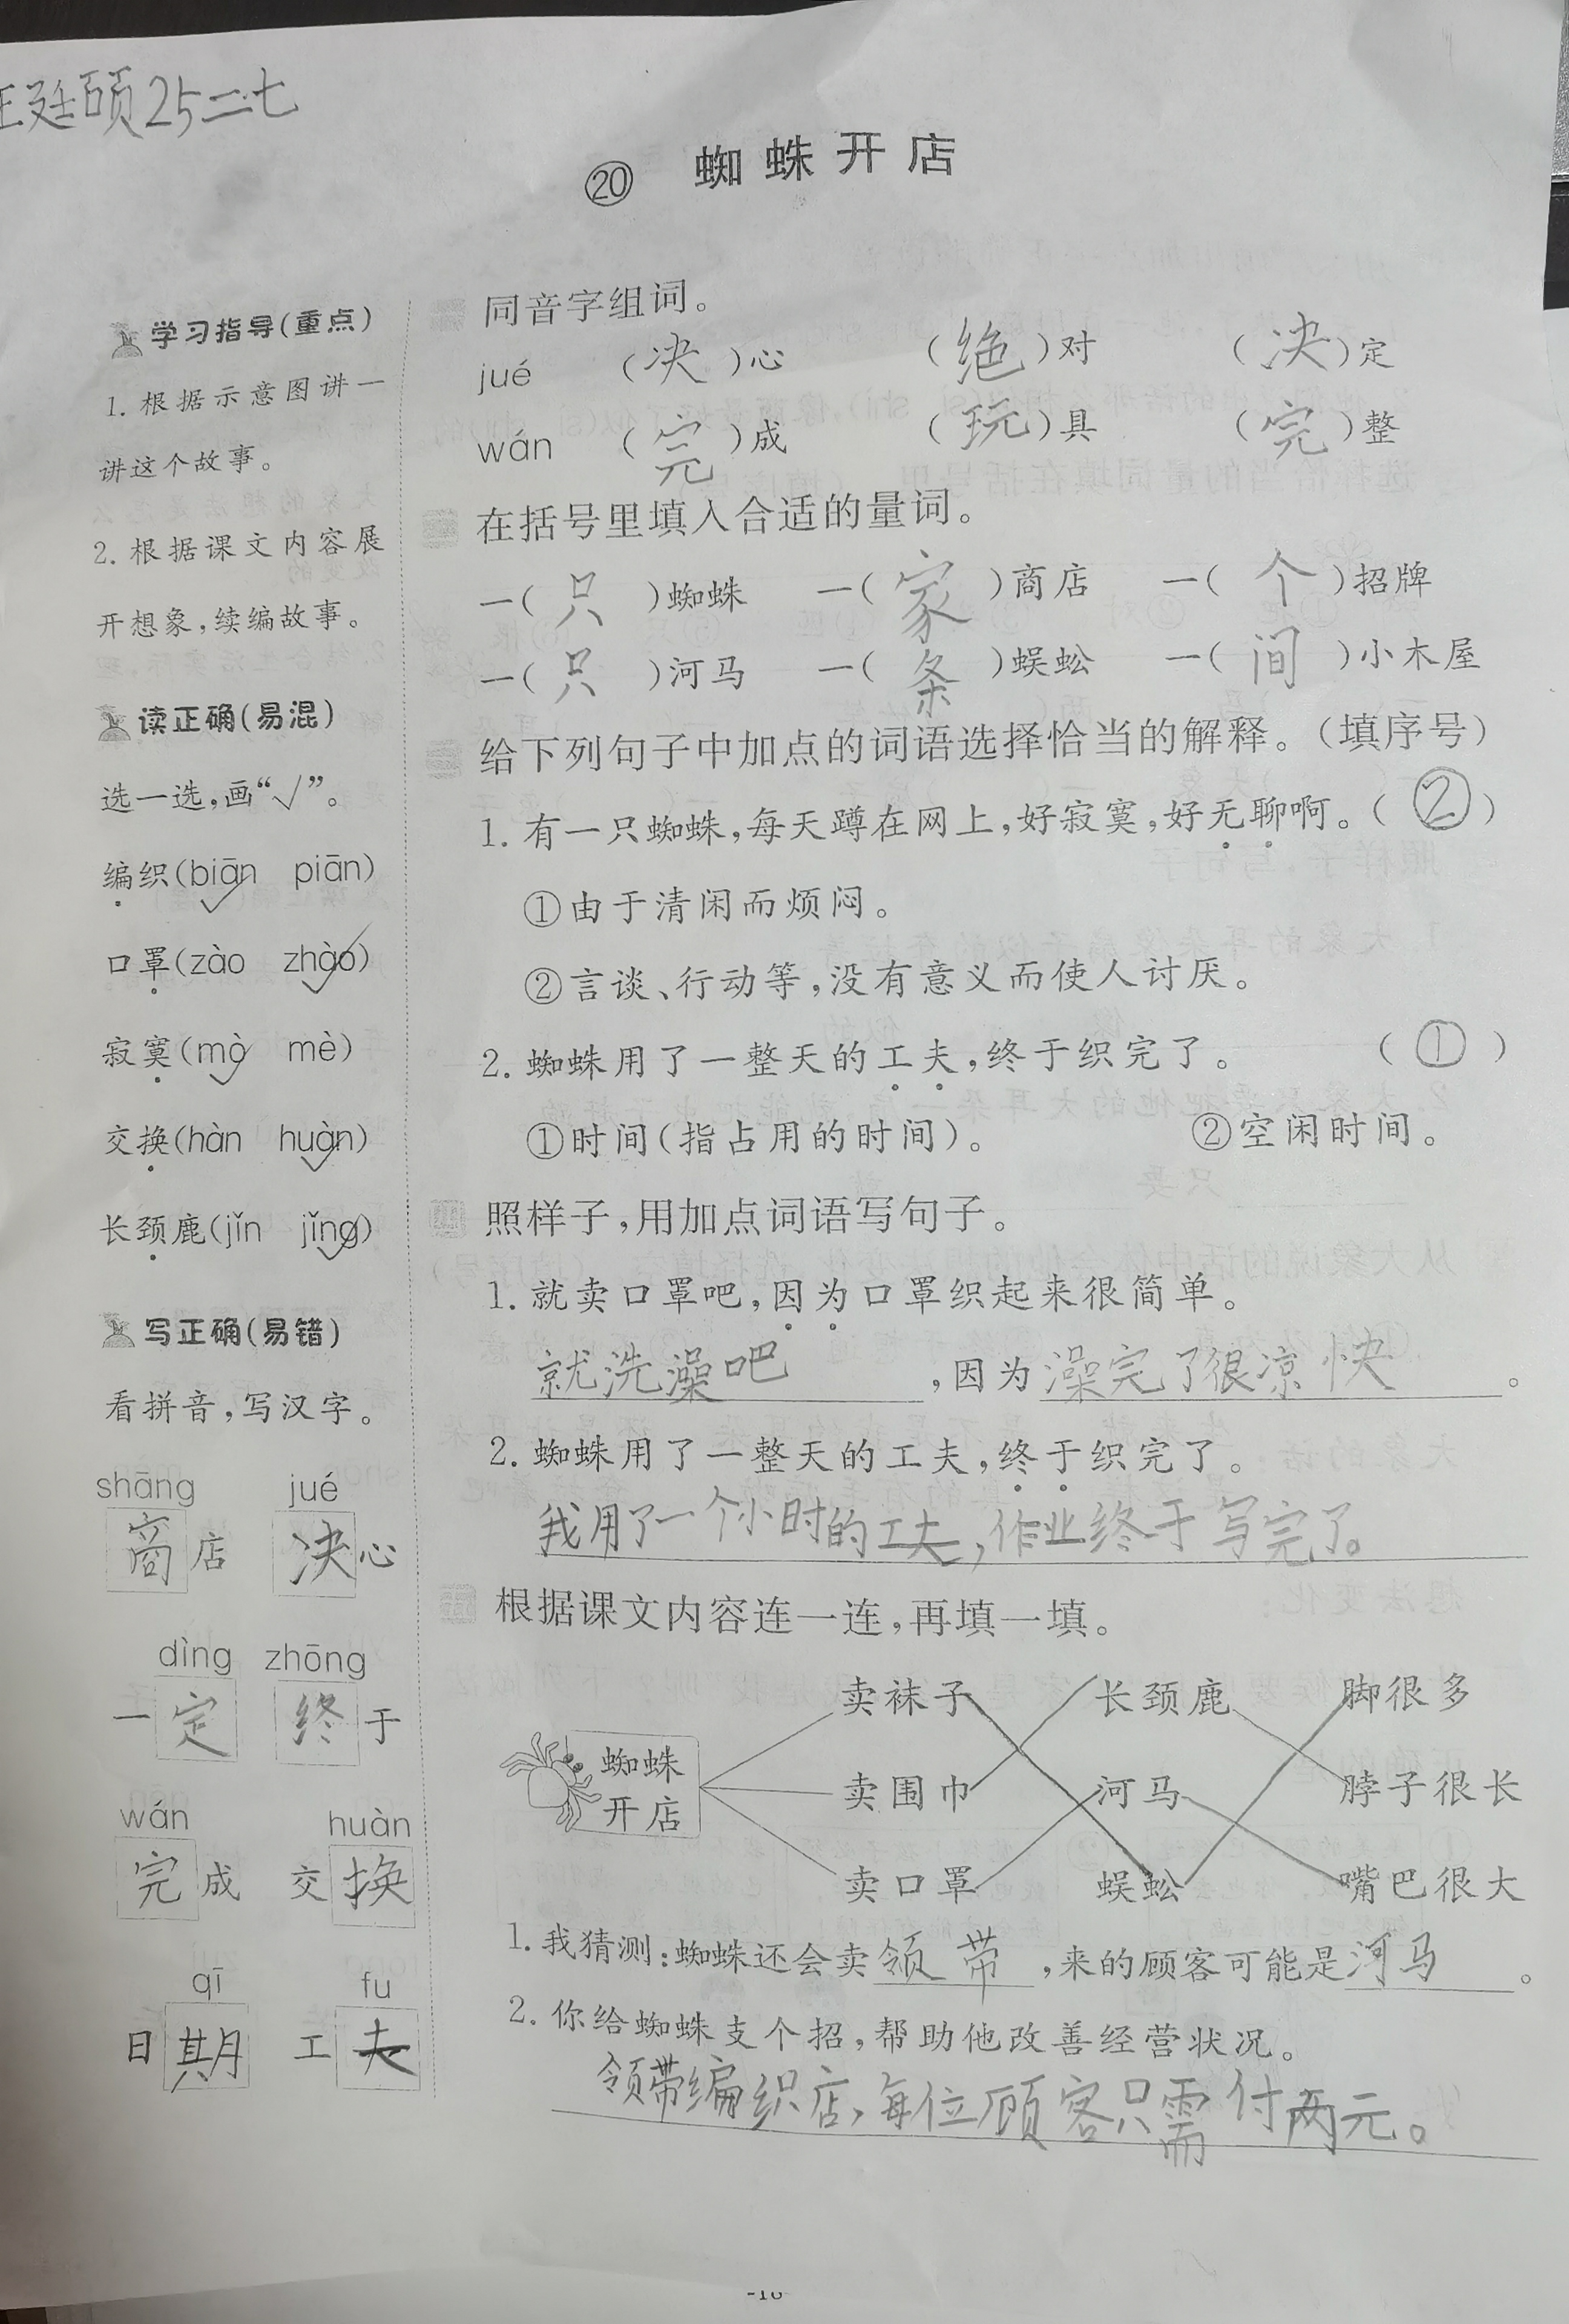 王廷硕25二七
⑳ 蜘蛛开店
学习指导(重点)
1. 根据示意图讲一
讲这个故事。
2. 根据课文内容展
开想象,续编故事。
读正确(易混)
选一选,画“√”。
编织(biān piān)
口罩(zào zhào)
寂寞(mò mè)
交换(hàn huàn)
长颈鹿(jǐn jǐng)
写正确(易错)
看拼音,写汉字。
shāng jué
商店 决心
dìng zhōng
一定 终于
wán huàn
完成 交换
qī fu
日期 工夫
一 同音字组词。
jué (决)心 (绝)对 (决)定
wán (完)成 (玩)具 (完)整
二 在括号里填入合适的量词。
一(只)蜘蛛 一(家)商店 一(个)招牌
一(只)河马 一(条)蜈蚣 一(间)小木屋
三 给下列句子中加点的词语选择恰当的解释。(填序号)
1. 有一只蜘蛛,每天蹲在网上,好寂寞,好无聊啊。(②)
①由于清闲而烦闷。
②言谈、行动等,没有意义而使人讨厌。
2. 蜘蛛用了一整天的工夫,终于织完了。 (①)
①时间(指占用的时间)。 ②空闲时间。
四 照样子,用加点词语写句子。
1. 就卖口罩吧,因为口罩织起来很简单。
就洗澡吧,因为澡完了很凉快。
2. 蜘蛛用了一整天的工夫,终于织完了。
我用了一个小时的工夫,作业终于写完了。
五 根据课文内容连一连,再填一填。
卖袜子 长颈鹿 脚很多
蜘蛛
开店
卖围巾 河马 脖子很长
卖口罩 蜈蚣 嘴巴很大
1. 我猜测:蜘蛛还会卖领带,来的顾客可能是河马。
2. 你给蜘蛛支个招,帮助他改善经营状况。
领带编织店,每位顾客只需付两元。